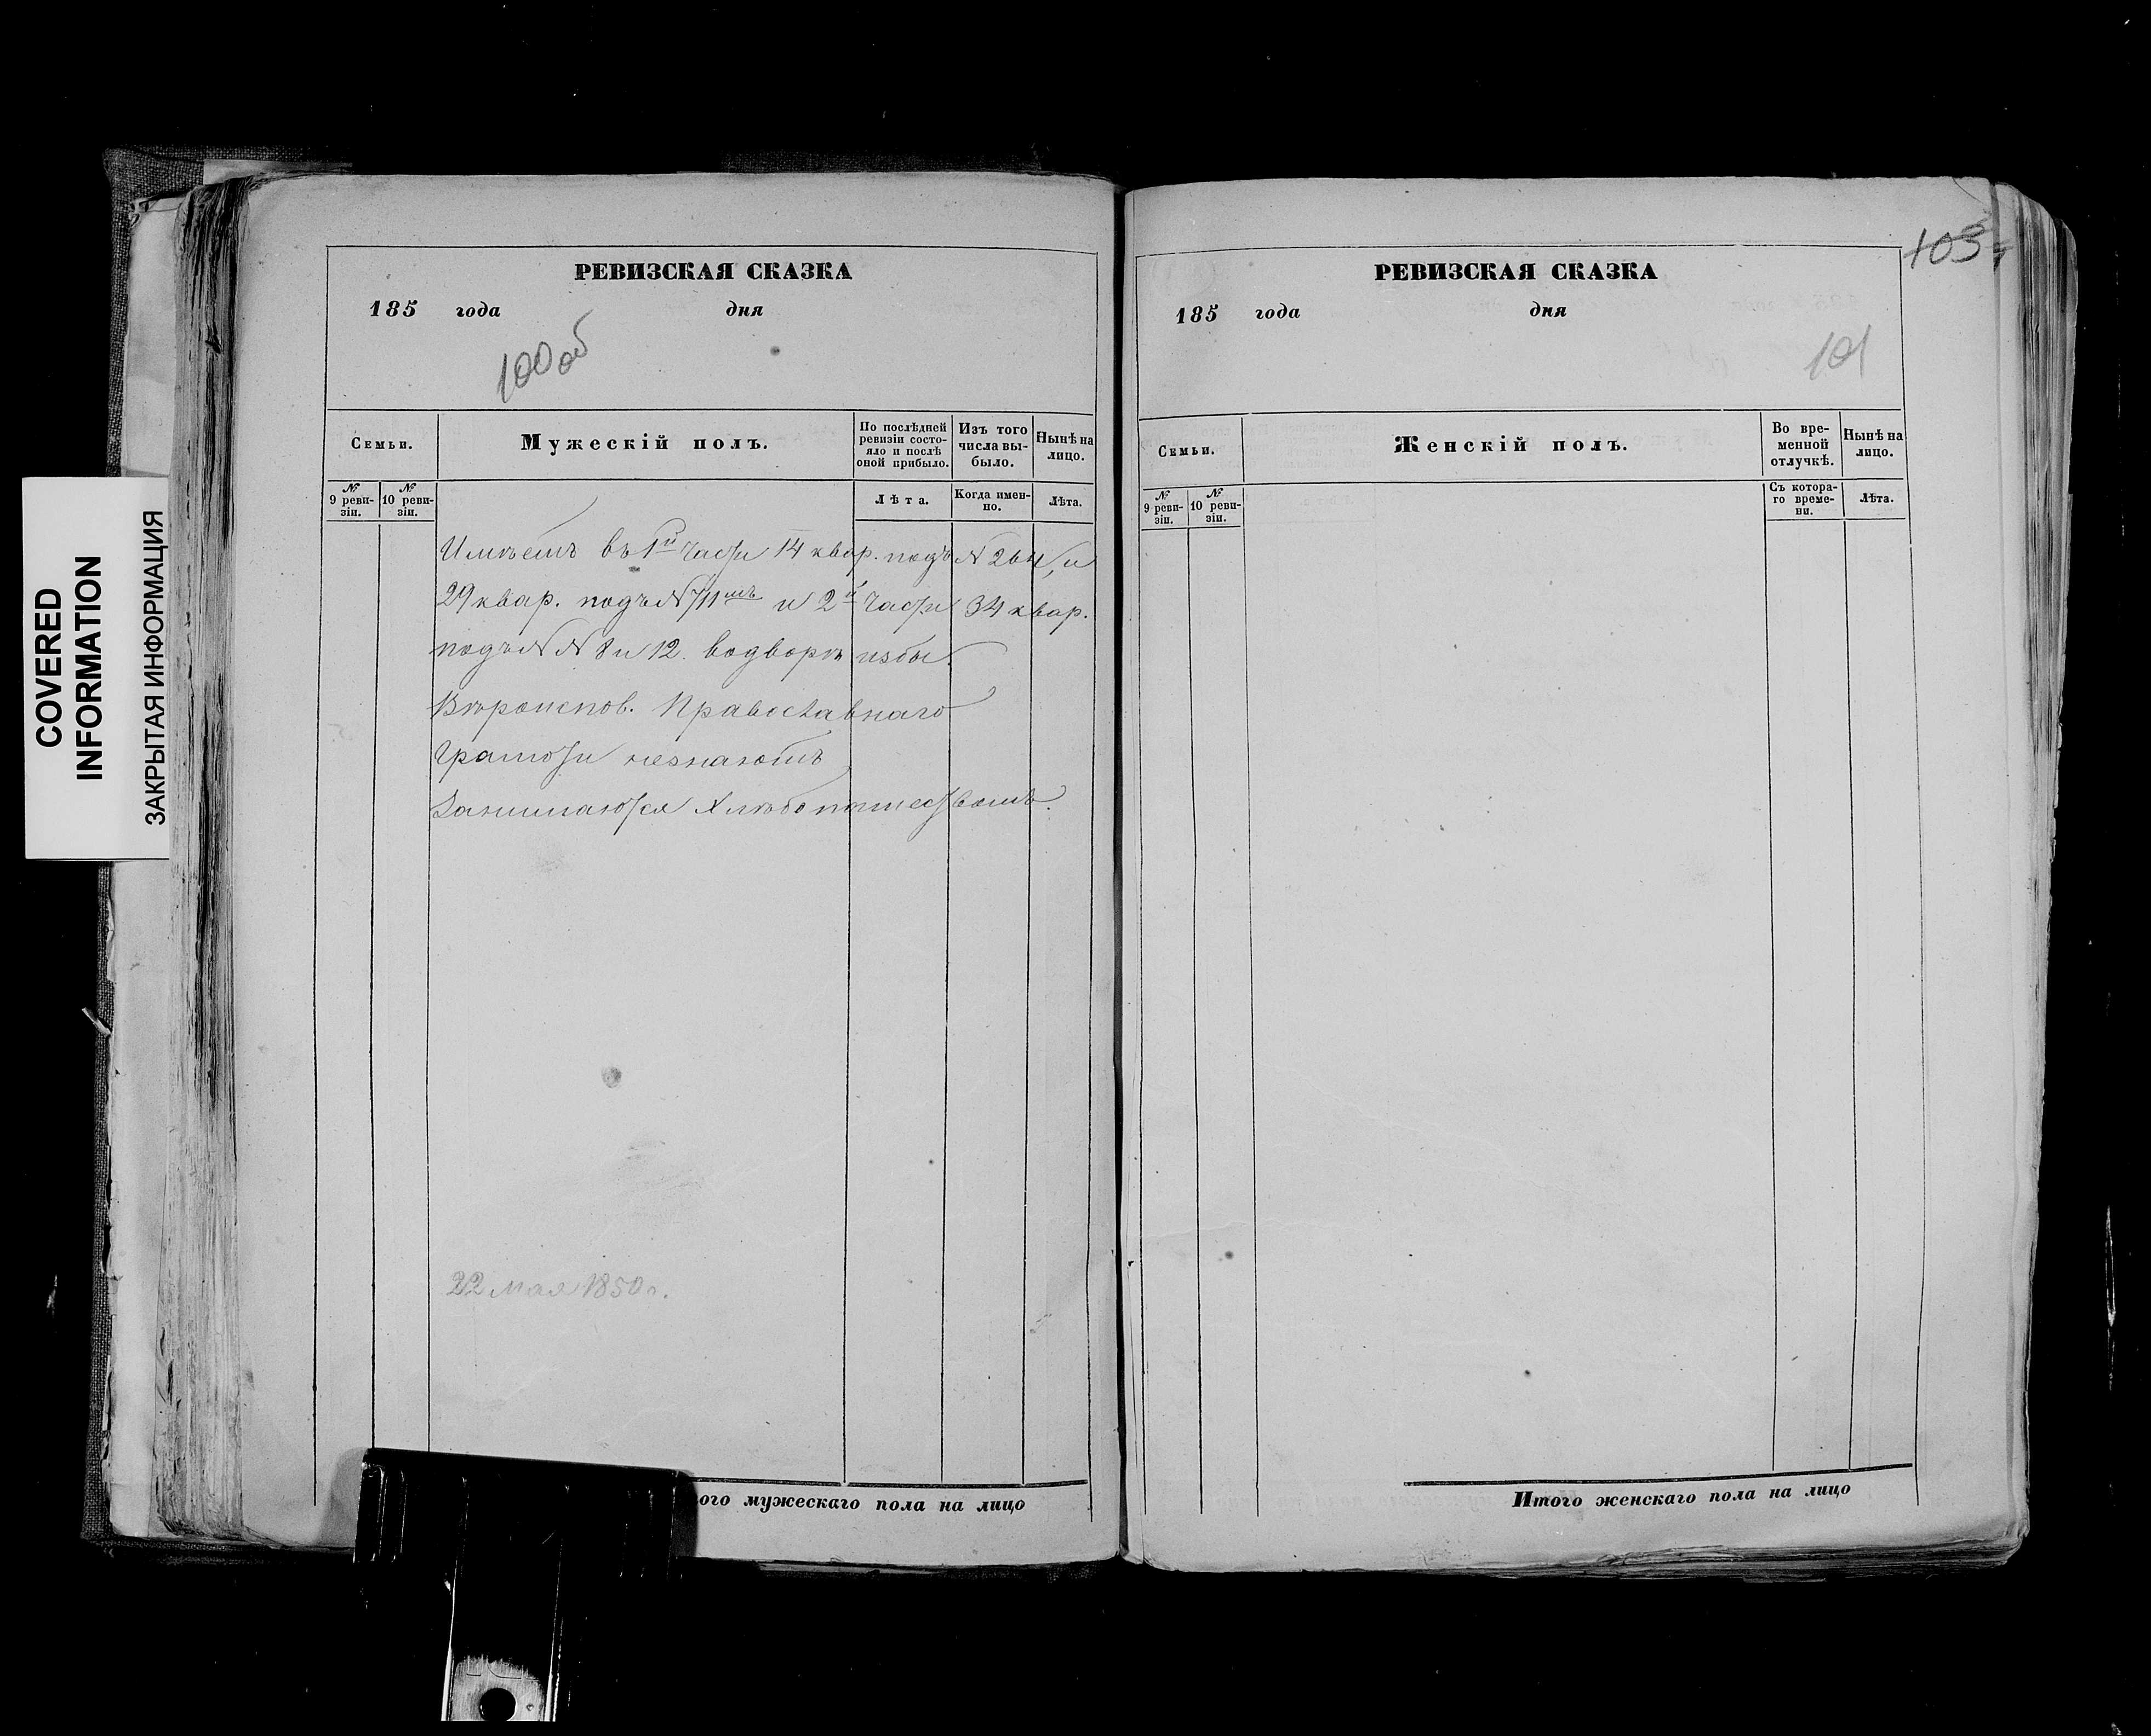 COVERED
INFORMATION
ЗАКРЫТАЯ ИНФОРМАЦИЯ
РЕВИЗСКАЯ СКАЗКА
185 года дня
100 об
Семьи.
Мужескій полъ.
По послѣдней
ревизіи состо-
яло и послѣ
оной прибыло.
Изъ того
числа вы-
было.
Нынѣ на
лицо.
№
9 реви-
зіи.
№
10 реви-
зіи.
Лѣта.
Когда имен-
но.
Лѣта.
Имѣетъ въ 1й части 14 квар. подъ N 264, и
29 квар. подъ N 711мъ и 2й части 34 квар.
подъ N N 8 и 12. водворѣ избы.
Вѣроиспов. Православнаго
Грамоти незнаютъ
Занимаются Хлѣбопашествомъ.
22 мая 1850 г.
ого мужескаго пола на лицо
103
РЕВИЗСКАЯ СКАЗКА
185 года дня
101
Семьи.
Женскій полъ.
Во вре-
менной
отлучкѣ.
Нынѣ на
лицо.
№
9 реви-
зіи.
№
10 реви-
зіи.
Съ котора-
го време-
ни.
Лѣта.
Итого женскаго пола на лицо